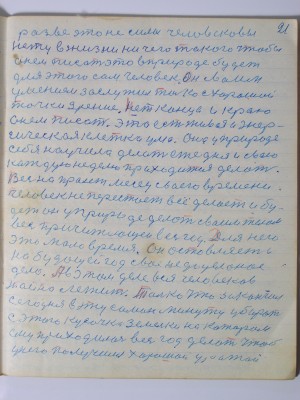 21
разве это не силы человековы
нету в жизни ничего такого чтобы
о нем писат это в природе будет
для этого сам человек, Он своим
умением заслужил только с хорошой
точки зрение, Нет конца и краю
о нем писат. Это есть живая энер-
гическая клетка ума. Она у природе
себя научила делат ежедня и свою
каждую неделю приходится делат.
Весь на проет месец своего времени.
Человек не перестает всё делает и бу-
дет он у природе делат своим такой
век причитающего вес год. Для него
это мало время. Он оставляет
на будущий год свое не доделоное
дело. А в этом деле вся человеков
тайно лежит. Только что закончил
сегодня в эту самою минуту убират
с этого кусочка земельки на котором
ему приходилос вес год делат чтоб
у него получился хорошой